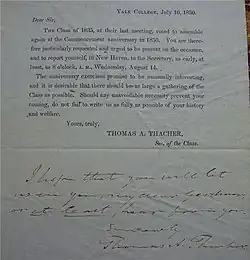 YALE COLLEGE, July 10, 1850.
Dear Sir,
The Class of 1835, at their last meeting, voted to assemble
again at the Commencement anniversary in 1850. You are there-
fore particularly requested and urged to be present on the occasion,
and to report yourself, in New Haven, to the Secretary, as early, at
least, as 8 o'clock, A. M., Wednesday, August 14.
The anniversary exercises promise to be unusually interesting,
and it is desirable that there should be as large a gathering of the
Class as possible. Should any unavoidable necessity prevent your
coming, do not fail to write us as fully as possible of your history
and welfare.
Yours, truly,
THOMAS A. THACHER,
Sec. of the Class.
I hope that you will let
us see you
or at least, hear from you
Sincerely
Thomas A. Thacher